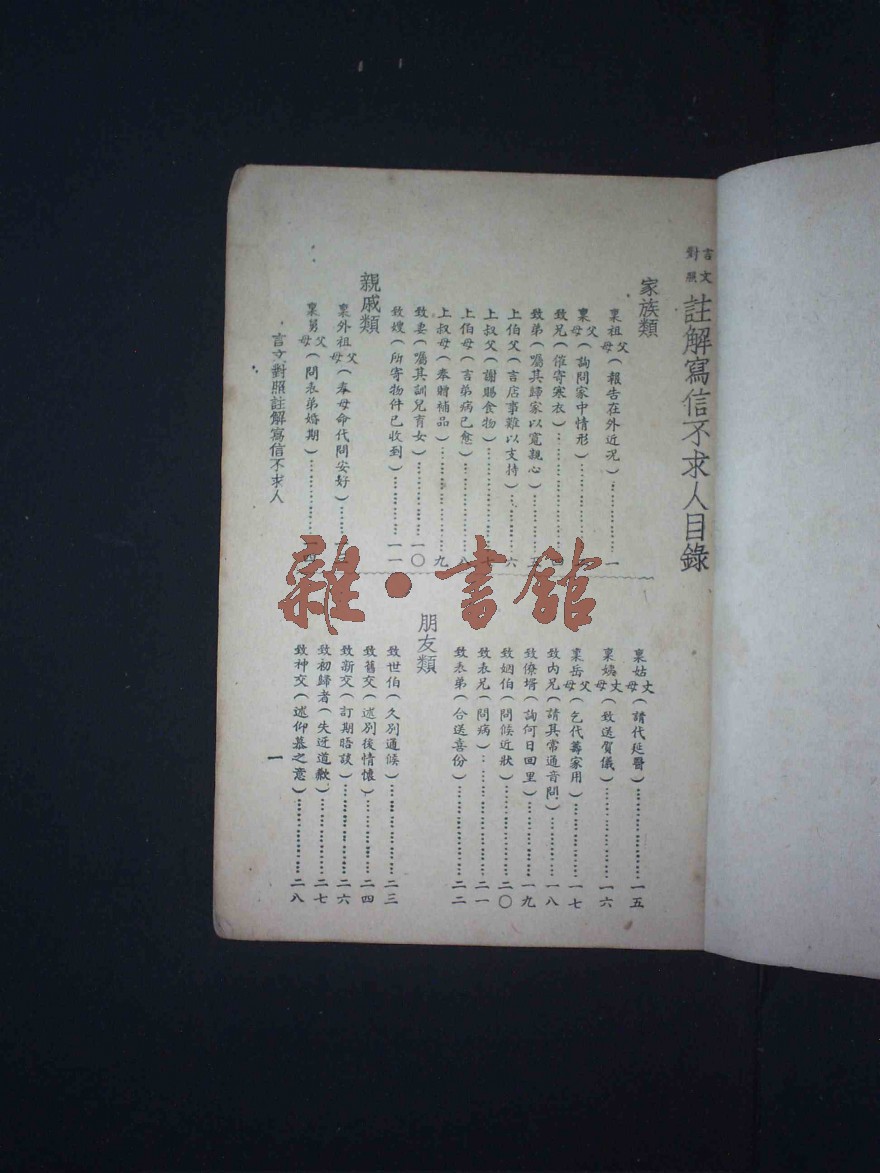 言文對照 註解寫信不求人目錄
家族類
稟祖父母(報告在外近況)⋯⋯⋯⋯一
稟父母(詢問家中情形)⋯⋯⋯⋯
致兄(催寄寒衣)⋯⋯⋯⋯
致弟(囑其歸家以寬親心)⋯⋯⋯⋯五
上伯父(言店事難以支持)⋯⋯⋯⋯六
上叔父(謝賜食物)⋯⋯⋯⋯七
上伯母(言弟病已愈)⋯⋯⋯⋯八
上叔母(奉贈補品)⋯⋯⋯⋯九
致妻(囑其訓兒育女)⋯⋯⋯⋯一〇
致嫂(所寄物件已收到)⋯⋯⋯⋯一一
親戚類
稟外祖父母(奉母命代問安好)⋯⋯⋯⋯
稟舅父母(問表弟婚期)⋯⋯⋯⋯一四
稟姑丈母(請代延醫)⋯⋯⋯⋯一五
稟姨丈母(致送賀儀)⋯⋯⋯⋯一六
稟岳父母(乞代籌家用)⋯⋯⋯⋯一七
致內兄(請其常通音問)⋯⋯⋯⋯一八
致僚壻(詢何日回里)⋯⋯⋯⋯一九
致姻伯(問候近狀)⋯⋯⋯⋯二〇
致表兄(問病)⋯⋯⋯⋯二一
致表弟(合送喜份)⋯⋯⋯⋯二二
朋友類
致世伯(久別通候)⋯⋯⋯⋯二三
致舊交(述別後情懷)⋯⋯⋯⋯二四
致新交(訂期晤談)⋯⋯⋯⋯二六
致初歸者(失迓道歉)⋯⋯⋯⋯二七
致神交(述仰慕之意)⋯⋯⋯⋯二八
言文對照註解寫信不求人
一
雜·書館